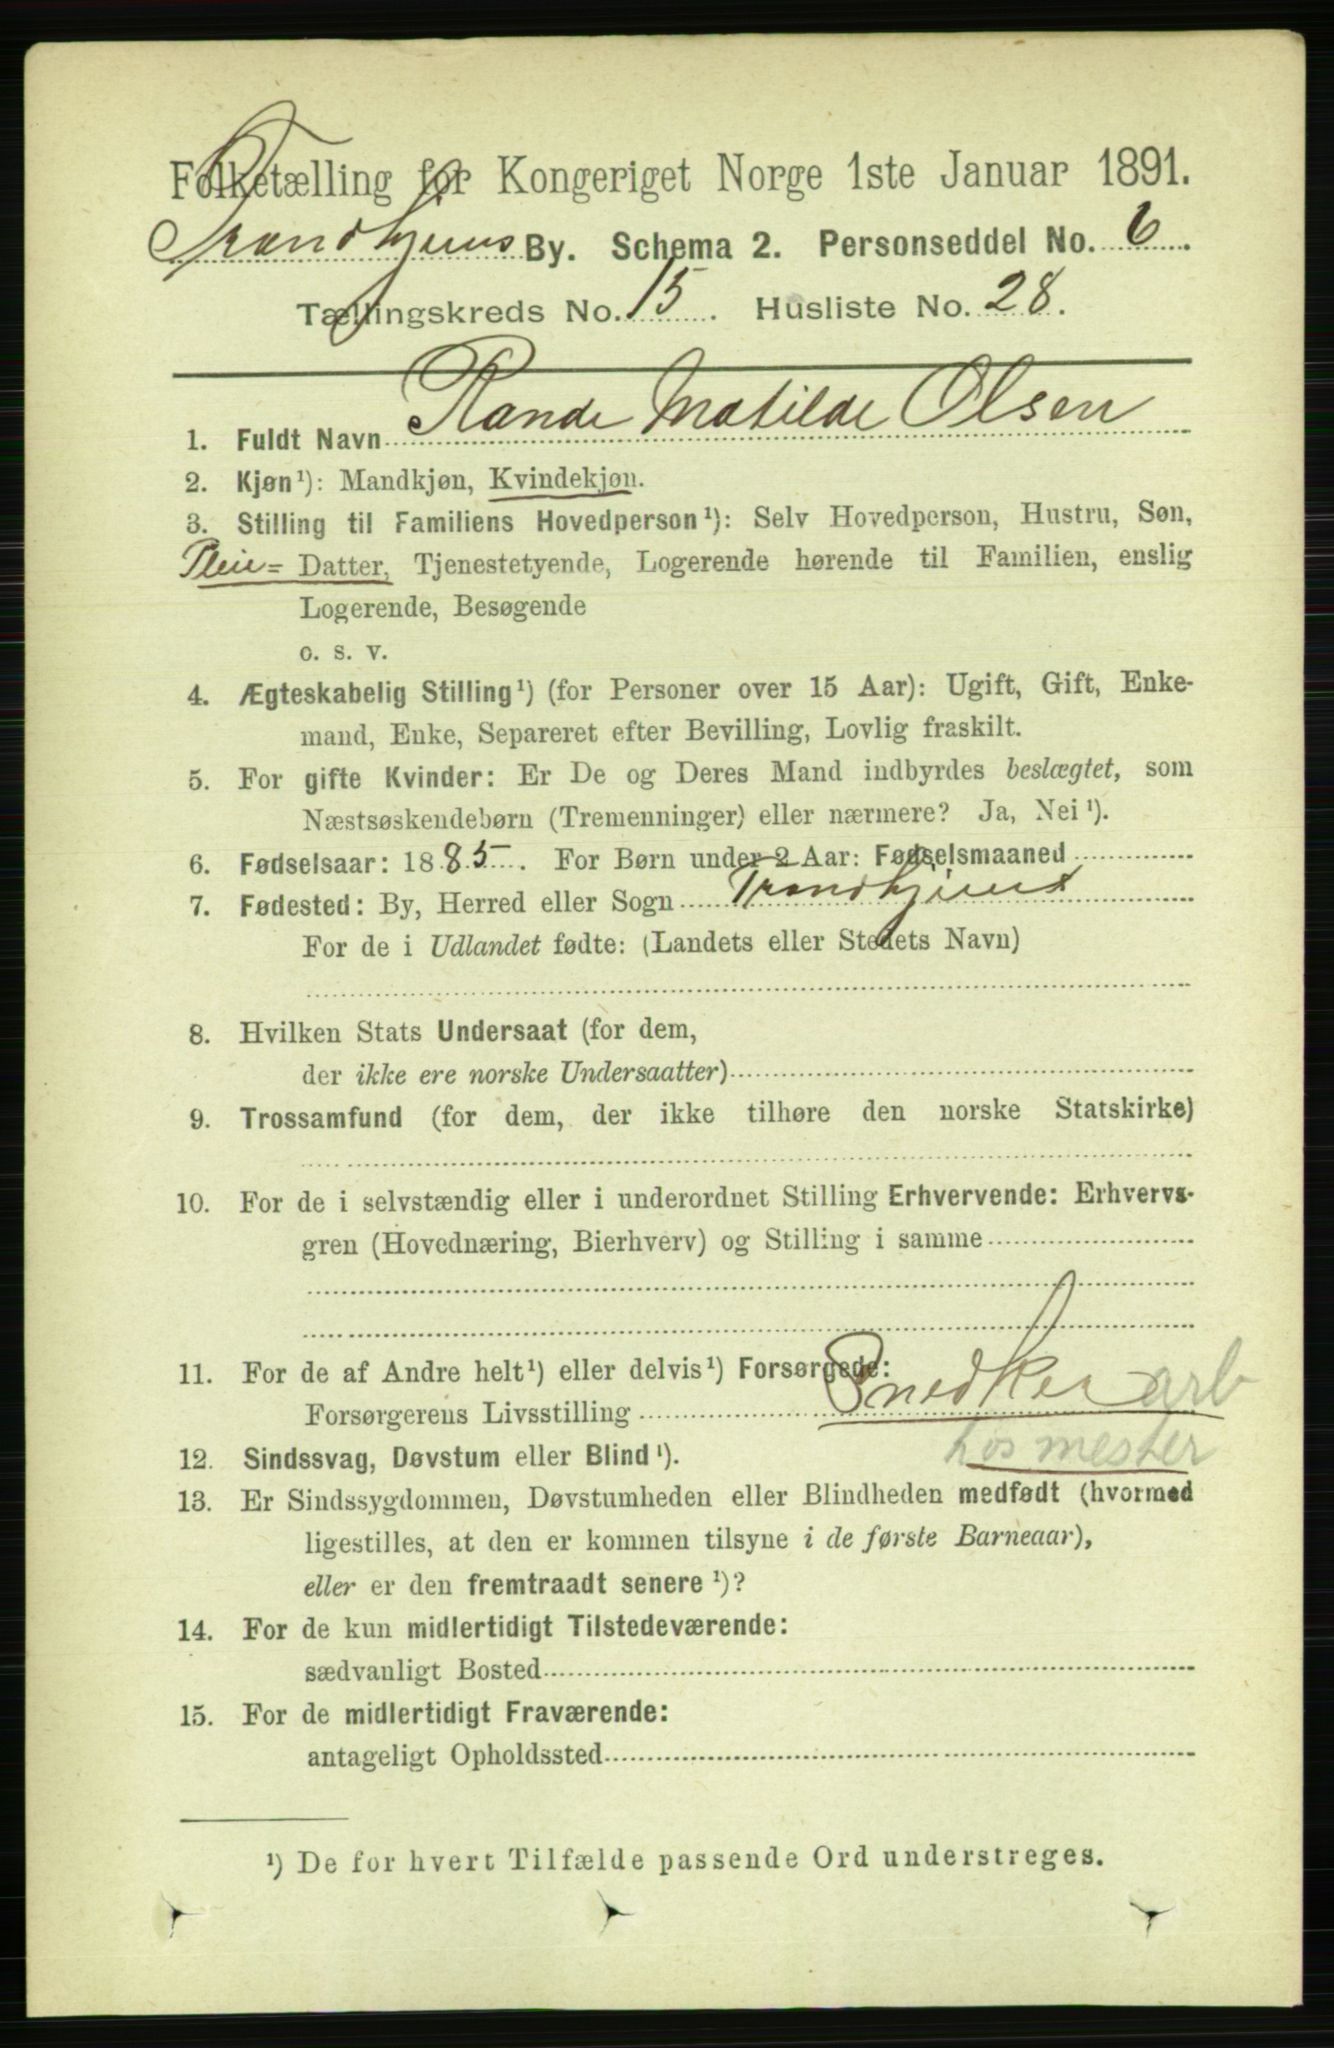 Folketælling for Kongeriget Norge 1ste Januar 1891.
Trondhjems By. Schema 2. Personseddel No. 6.
Tællingskreds No. 15. Husliste No. 28.
1. Fuldt Navn Rande Matilde Olsen
2. Kjøn¹): Mandkjøn, Kvindekjøn.
3. Stilling til Familiens Hovedperson¹): Selv Hovedperson, Hustru, Søn,
Pleie= Datter, Tjenestetyende, Logerende hørende til Familien, enslig
Logerende, Besøgende
o. s. v.
4. Ægteskabelig Stilling¹) (for Personer over 15 Aar): Ugift, Gift, Enke-
mand, Enke, Separeret efter Bevilling, Lovlig fraskilt.
5. For gifte Kvinder: Er De og Deres Mand indbyrdes beslægtet, som
Næstsøskendebørn (Tremenninger) eller nærmere? Ja, Nei¹).
6. Fødselsaar: 1885. For Børn under 2 Aar: Fødselsmaaned
7. Fødested: By, Herred eller Sogn Trondhjem
For de i Udlandet fødte: (Landets eller Stedets Navn)
8. Hvilken Stats Undersaat (for dem,
der ikke ere norske Undersaatter)
9. Trossamfund (for dem, der ikke tilhøre den norske Statskirke)
10. For de i selvstændig eller i underordnet Stilling Erhvervende: Erhvervs-
gren (Hovednæring, Bierhverv) og Stilling i samme
11. For de af Andre helt¹) eller delvis¹) Forsørgede:
Forsørgerens Livsstilling Snedker arb
hos mester
12. Sindssvag, Døvstum eller Blind¹).
13. Er Sindssygdommen, Døvstumheden eller Blindheden medfødt (hvormed
ligestilles, at den er kommen tilsyne i de første Barneaar),
eller er den fremtraadt senere¹)?
14. For de kun midlertidigt Tilstedeværende:
sædvanligt Bosted
15. For de midlertidigt Fraværende:
antageligt Opholdssted
¹) De for hvert Tilfælde passende Ord understreges.